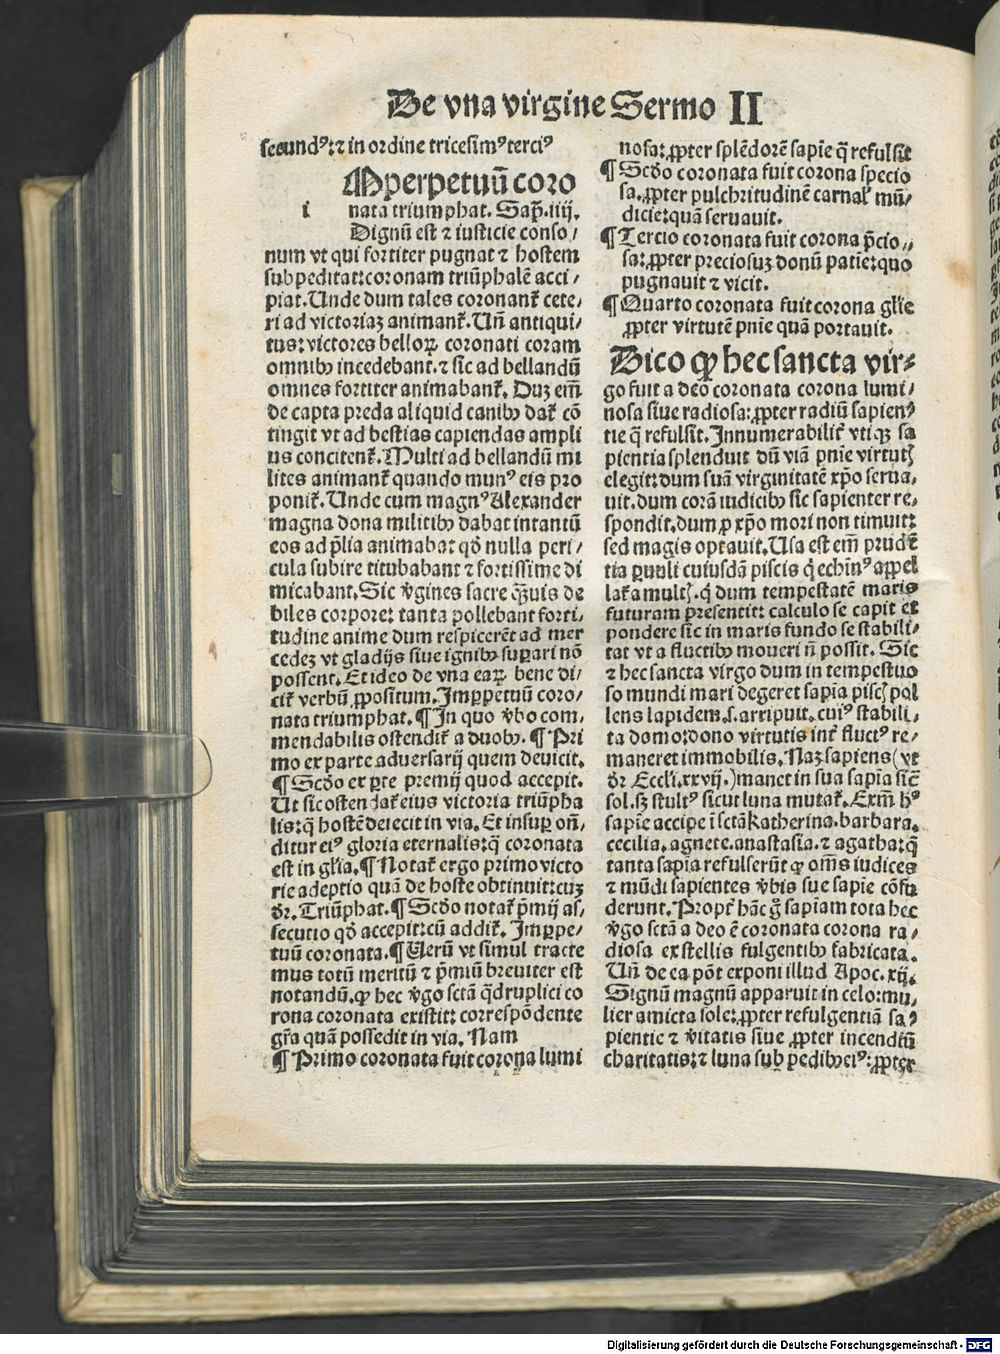 De vna virgine Sermo II
secundꝰ: ⁊ in ordine tricesimꝰ terciꝰ
i
Mperpetuū coro
nata triumphat. Sap̄. iiij.
Dignū est ⁊ iusticie conso/
num vt qui fortiter pugnat ⁊ hostem
subpeditat: coronam triūphalē acci/
piat. Unde dum tales coronant᷑ cete/
ri ad victoriaꝫ animant᷑. Uñ antiqui/
tus: victores belloꝝ coronati coram
omnibꝰ incedebant. ⁊ sic ad bellandū
omnes fortiter animabant᷑. Duꝫ em̄
de capta preda aliquid canibꝰ dat᷑ cō
tingit vt ad bestias capiendas ampli
us concitent᷑. Multi ad bellandū mi
lites animant᷑ quando munꝰ eis pro
ponit᷑. Unde cum magnꝰ Alexander
magna dona militibꝰ dabat intantū
eos ad p̄lia animabat: qd̄ nulla peri/
cula subire titubabant ⁊ fortissime di
micabant. Sic v̄gines sacre q̄uis de
biles corpore: tanta pollebant forti/
tudine anime dum respicerēt ad mer
cedeꝫ vt gladijs siue ignibꝰ suꝑari nō
possent. Et ideo de vna eaꝝ bene di/
cit᷑ verbū ꝓpositum. Imꝑpetuū coro/
nata triumphat. ¶ In quo v̄bo com/
mendabilis ostendit᷑ a duobꝰ. ¶ Pri
mo ex parte aduersarij quem deuicit.
¶ Scd̄o ex ꝑte premij quod accepit.
Ut sic ostendat᷑ eius victoria triūpha
lis: q̄ hostē deiecit in via. Et insuꝑ on̄/
ditur eiꝰ gloria eternalis: q̄ coronata
est in gl̄ia. ¶ Notat᷑ ergo primo victo
rie adeptio quā de hoste obtinuit: cuꝫ
dr̄. Triūphat. ¶ Scd̄o notat᷑ p̄mij as/
secutio qd̄ accepit: cū addit᷑. Imꝑpe/
tuū coronata. ¶ Uerū vt simul tracte
mus totū meritū ⁊ p̄miū breuiter est
notandū. ꝙ hec v̄go sctā q̄druplici co
rona coronata existit: correspōdente
gr̄a quā possedit in via. Nam
¶ Primo coronata fuit corona lumi
nosa: ꝓpter splēdorē sapīe q̄ refulsit
¶ Scd̄o coronata fuit corona specio
sa. ꝓpter pulchritudinē carnał mū/
dicie: quā seruauit.
¶ Tercio coronata fuit corona p̄cio/
sa: ꝓpter preciosuꝫ donū patīe: quo
pugnauit ⁊ vicit.
¶ Quarto coronata fuit corona gl̄ie
ꝓpter virtutē pn̄ie quā portauit.
Dico ꝙ hec sancta vir/
go fuit a deo coronata corona lumi/
nosa siue radiosa: ꝓpter radiū sapien/
tie q̄ refulsit. Innumerabilit᷑ vtiqꝫ sa
pientia splenduit dū viā pn̄ie virtutꝭ
elegit: dum suā virginitatē xp̄o serua/
uit. dum corā iudicibꝰ sic sapienter re/
spondit. dum ꝓ xp̄o mori non timuit:
sed magis optauit. Usa est em̄ prudē
tia ꝑuuli cuiusdā piscis q̇ echinꝰ appel
lat᷑ a multꝭ. q̇ dum tempestatē maris
futuram presentit: calculo se capit et
pondere sic in maris fundo se stabili/
tat vt a fluctibꝰ moueri n̄ possit. Sic
⁊ hec sancta virgo dum in tempestuo
so mundi mari degeret sapīa piscꝭ pol
lens lapidem .s. arripuit. cuiꝰ stabili/
ta domo: dono virtutis int᷑ fluctꝰ re/
maneret immobilis. Naꝫ sapiens (vt
dr̄ Eccli. xxvij.) manet in sua sapīa sicē
sol. sꝫ stultꝰ sicut luna mutat᷑. Exm̄ hꝰ
sapīe accipe ī sctā katherina. barbara.
cecilia. agnete. anastasia. ⁊ agatha: q̄
tanta sapīa refulserūt ꝙ om̄s iudices
⁊ mūdi sapientes v̄bis sue sapīe cōfu
derunt. Propt᷑ hāc g᷑ sapīam tota hec
v̄go sctā a deo ē coronata corona ra/
diosa ex stellis fulgentibꝰ fabricata.
Uñ de ea pōt exponi illud Apoc. xij.
Signū magnū apparuit in celo: mu/
lier amicta sole: ꝓpter refulgentiā sa/
pientie ⁊ v̄itatis siue ꝓpter incendiū
charitatis: ⁊ luna sub pedibꝰ eiꝰ: ꝓpter
Digitalisierung gefördert durch die Deutsche Forschungsgemeinschaft - DFG